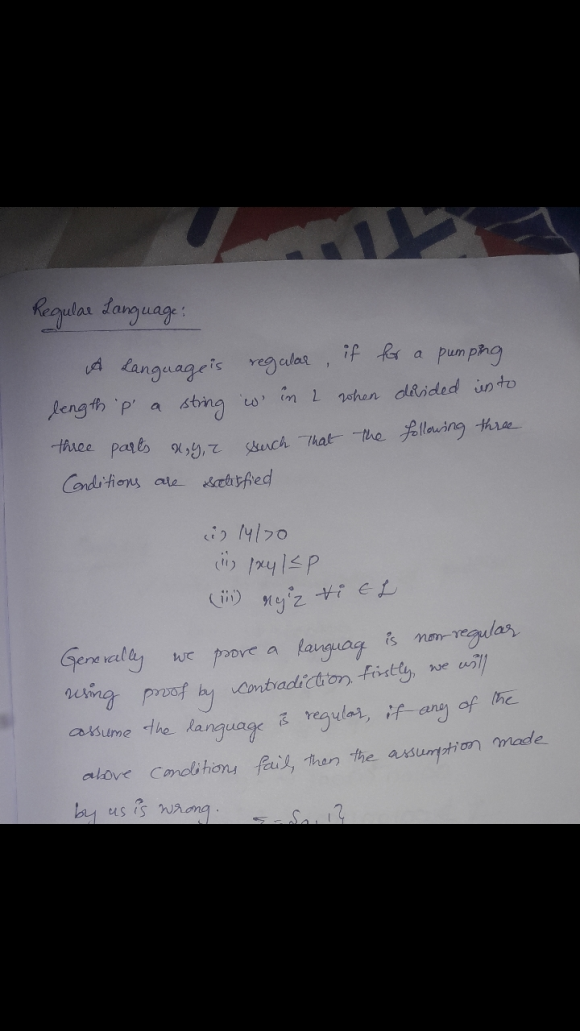 Regular Language:
A Language is regular, if for a pumping
length 'p' a string 'w' in L when divided into
three parts x,y,z such that the following three
Conditions are satisfied
(i) |y|>0
(ii) |xy|≤p
(iii) xyⁱz ∀i ∈ L
Generally we prove a languag is non-regular
using proof by contradiction. firstly, we will
assume the language is regular, if any of the
above conditions fail, then the assumption made
by us is wrong.